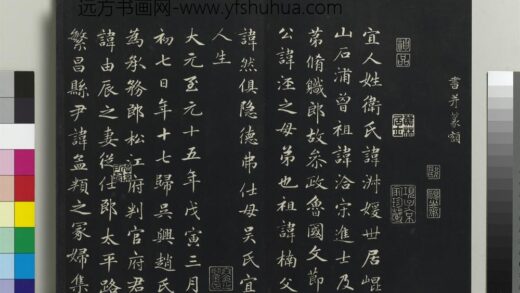 远方书画网-www.yfshuhua.com
書并篆額
宜人姓衛氏諱淑媛世居崐
山石浦曾祖諱洽宋進士及
苐脩軄郎故叅政魯國文節
公諱涇之母弟也祖諱楠父
諱然俱隐德弗仕母吴氏宜
人生
大元至元十五年戊寅三月
初七日年十七歸吳興趙氏
為承務郎松江府判官府君
諱由辰之妻從仕郎太平路
繁昌縣尹諱孟頖之冢婦集
項子京家珍藏